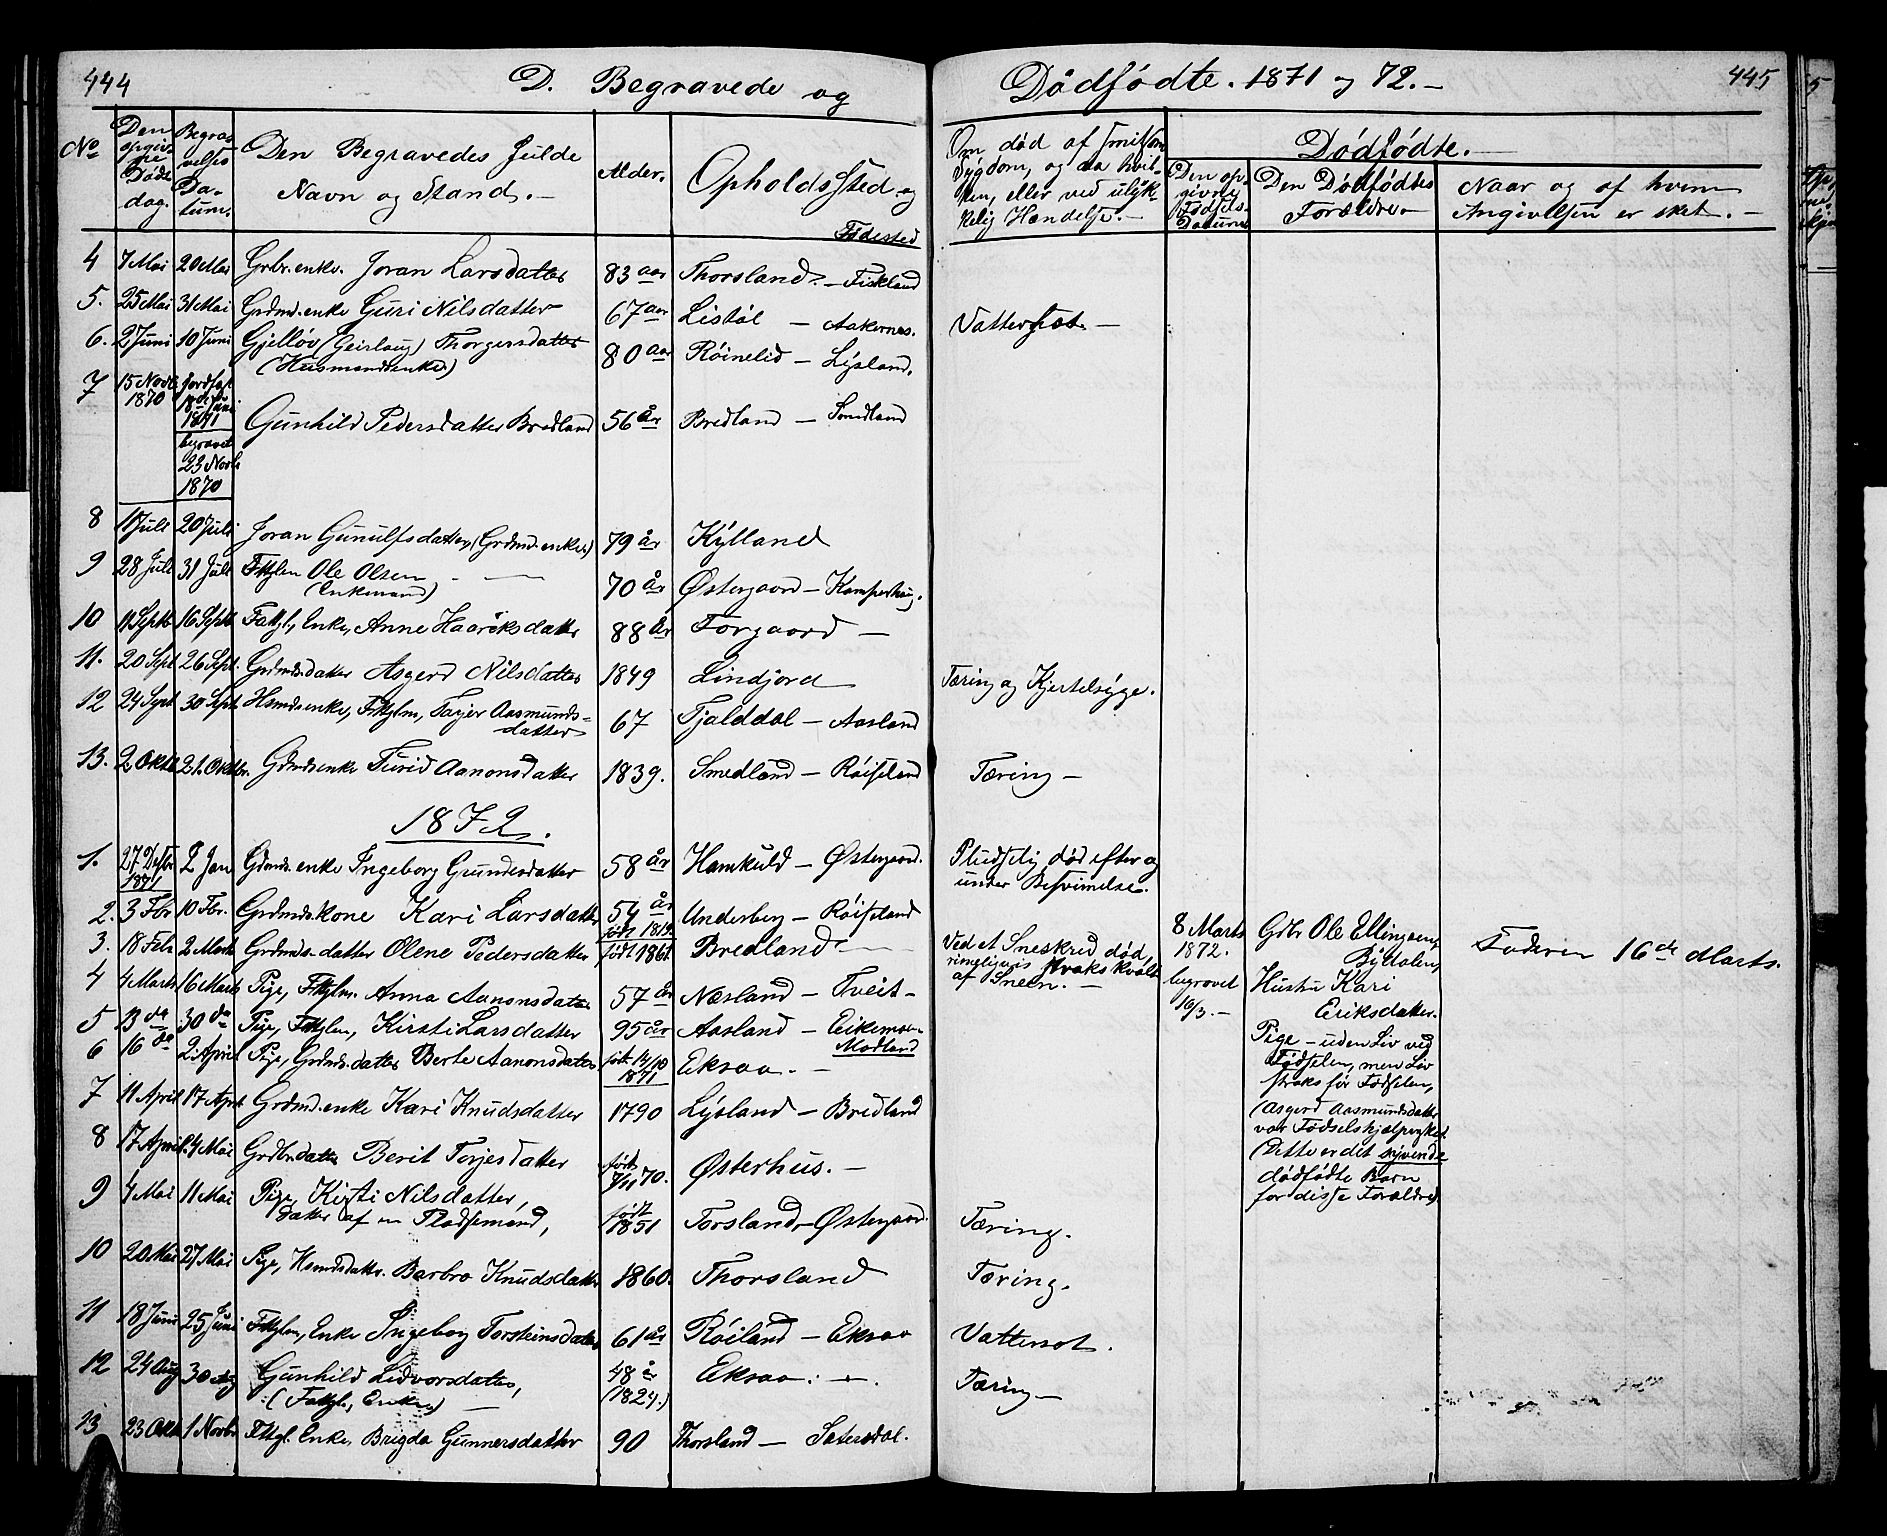 444
D. Begravede og
Dødfødte. 1871 og 72. –
445
No
Den opgivne Døds dag.
Begravelses Datum.
Den Begravedes fulde
Navn og Stand. –
Alder.
Opholdssted og
Fødested
Om død af smitsom
Sygdom, og da hvilken, eller ved ulykkelig Hændelse. –
Dødfødte. –
Den opgivne Fødsels Datum
Den Dødfødtes
Forældre. –
Naar og af hvem
Angivelsen er sket. –
4 7 Mai 20 Mai Grbr. enke. Joran Larsdatter 83 aar Thorsland – Fiskland
5. 25 Mai 31 Mai Grdmd. enke Guri Nilsdatter 67 aar Listøl – Aakernes. Vattersot. –
6. 2 Juni 10 Juni Gjelløv (Geirlaug) Thorgersdatter 80 aar Røinelid – Lysland.
(Husmandsenke)
7 15 Novb 1870 Jordfæst 18de Juni 1871 Gunhild Pedersdatter Bredland 56 år Bredland – Smedland
begravet
23 Novb
1870
8 11 Juli 20 Juli Joran Gunulfsdatter (Grdmd. enke) 79 år Kylland
9 28 Juli 31 Juli Fttglm Ole Olsen – 70 år Østergaard – Kamperhaug.
(Enkemand)
10 11 Septb 16 Septb Fattgl, Enke, Anne Haaréksdatter 88 År Forgaard –
11. 20 Sept 26 Sept. Grdmdsdatter Asgerd Nilsdatter 1849 Lindjord Tæring og Kjertelsyge.
12 24 Sept 30 Sept Hsmdsenke, Fttglm, Tarjer Aasmunds- 67 Tjalddal – Aasland
datter
13. 2 Oktb 21. Oktbr. Grdmdsenke Turid Aanonsdatter 1839. Smedland – Røiseland Tæring –
1872.
1. 27 Desbr 1871 2 Jan Grdmds. enke Ingeborg Gundersdatter 58 år Hamkuld – Østergaard. Pludselig død efter og
under Besvimelse.
2. 3 Fbr 10 Fbr. Grdmdskone Kari Larsdatter 54 år Underberg – Røiseland
født 1819
3. 18 Feb 2 Marts Grdmds-datter Olene Pedersdatter født 1861. Bredland – Ved et Sneskred død,
rimeligvis straks kvalt
af Sneen. –
8 Marts
1872.
begravet
16/3. –
Gdbr Ole Ellingsen,
Bydalen,
Hustru Kari
Eriksdatter.
Pige – uden Liv ved
Fødselen, men Liv
straks før Fødselen,
(Asgerd Aasmundsdatter
var Fødselshjælperske.
(Dette er det syvende
dødfødte Barn
for disse Forældre)
Faderen 16de Marts.
4 4 Marts 16 Marts Pige, Fttglm. Anna Aanonsdatter 57 år Næsland – Tveit –
5 13 da 30 da Pige, Fttglm, Kirsti Larsdatter 95 år Aasland – Eikemo
6 16 da 2. April Pige, Grdmds. datter Berte Aanonsdatter født 14/10 1871 Eksaa. –
Modland
7 11 April 17 April Grdmd. enke Kari Knudsdatter 1790 Lysland – Bredland
8 17 April. 4 Mai Grdbr. datter Berit Torjesdatter født 7/11 70. Østerhus. –
9 4 Mai 11 Mai Pige, Kirsti Nilsdatter, født 1851 Torsland, – Østergaard. Tæring.
datter af en Pladsemand,
10 20 Mai 27 Mai Pige, Hsmdsdatter. Barbro Knudsdatter 1860. Thorsland Tæring.
11 18 Juni 25 Juni Fttglm, Enke Ingeborg Torsteinsdatter 61 år Røiland – Eksaa Vattersot.
12 24 Aug 30 Aug Gunhild Lidvorsdatter, 48 år Eksaa. – Tæring –
(Fattgl, Enke) – (1824.)
13 23 Okt 1 Novbr Fttgl. Enke, Brigda Gunnersdatter 90 Thorsland – Satersdal.